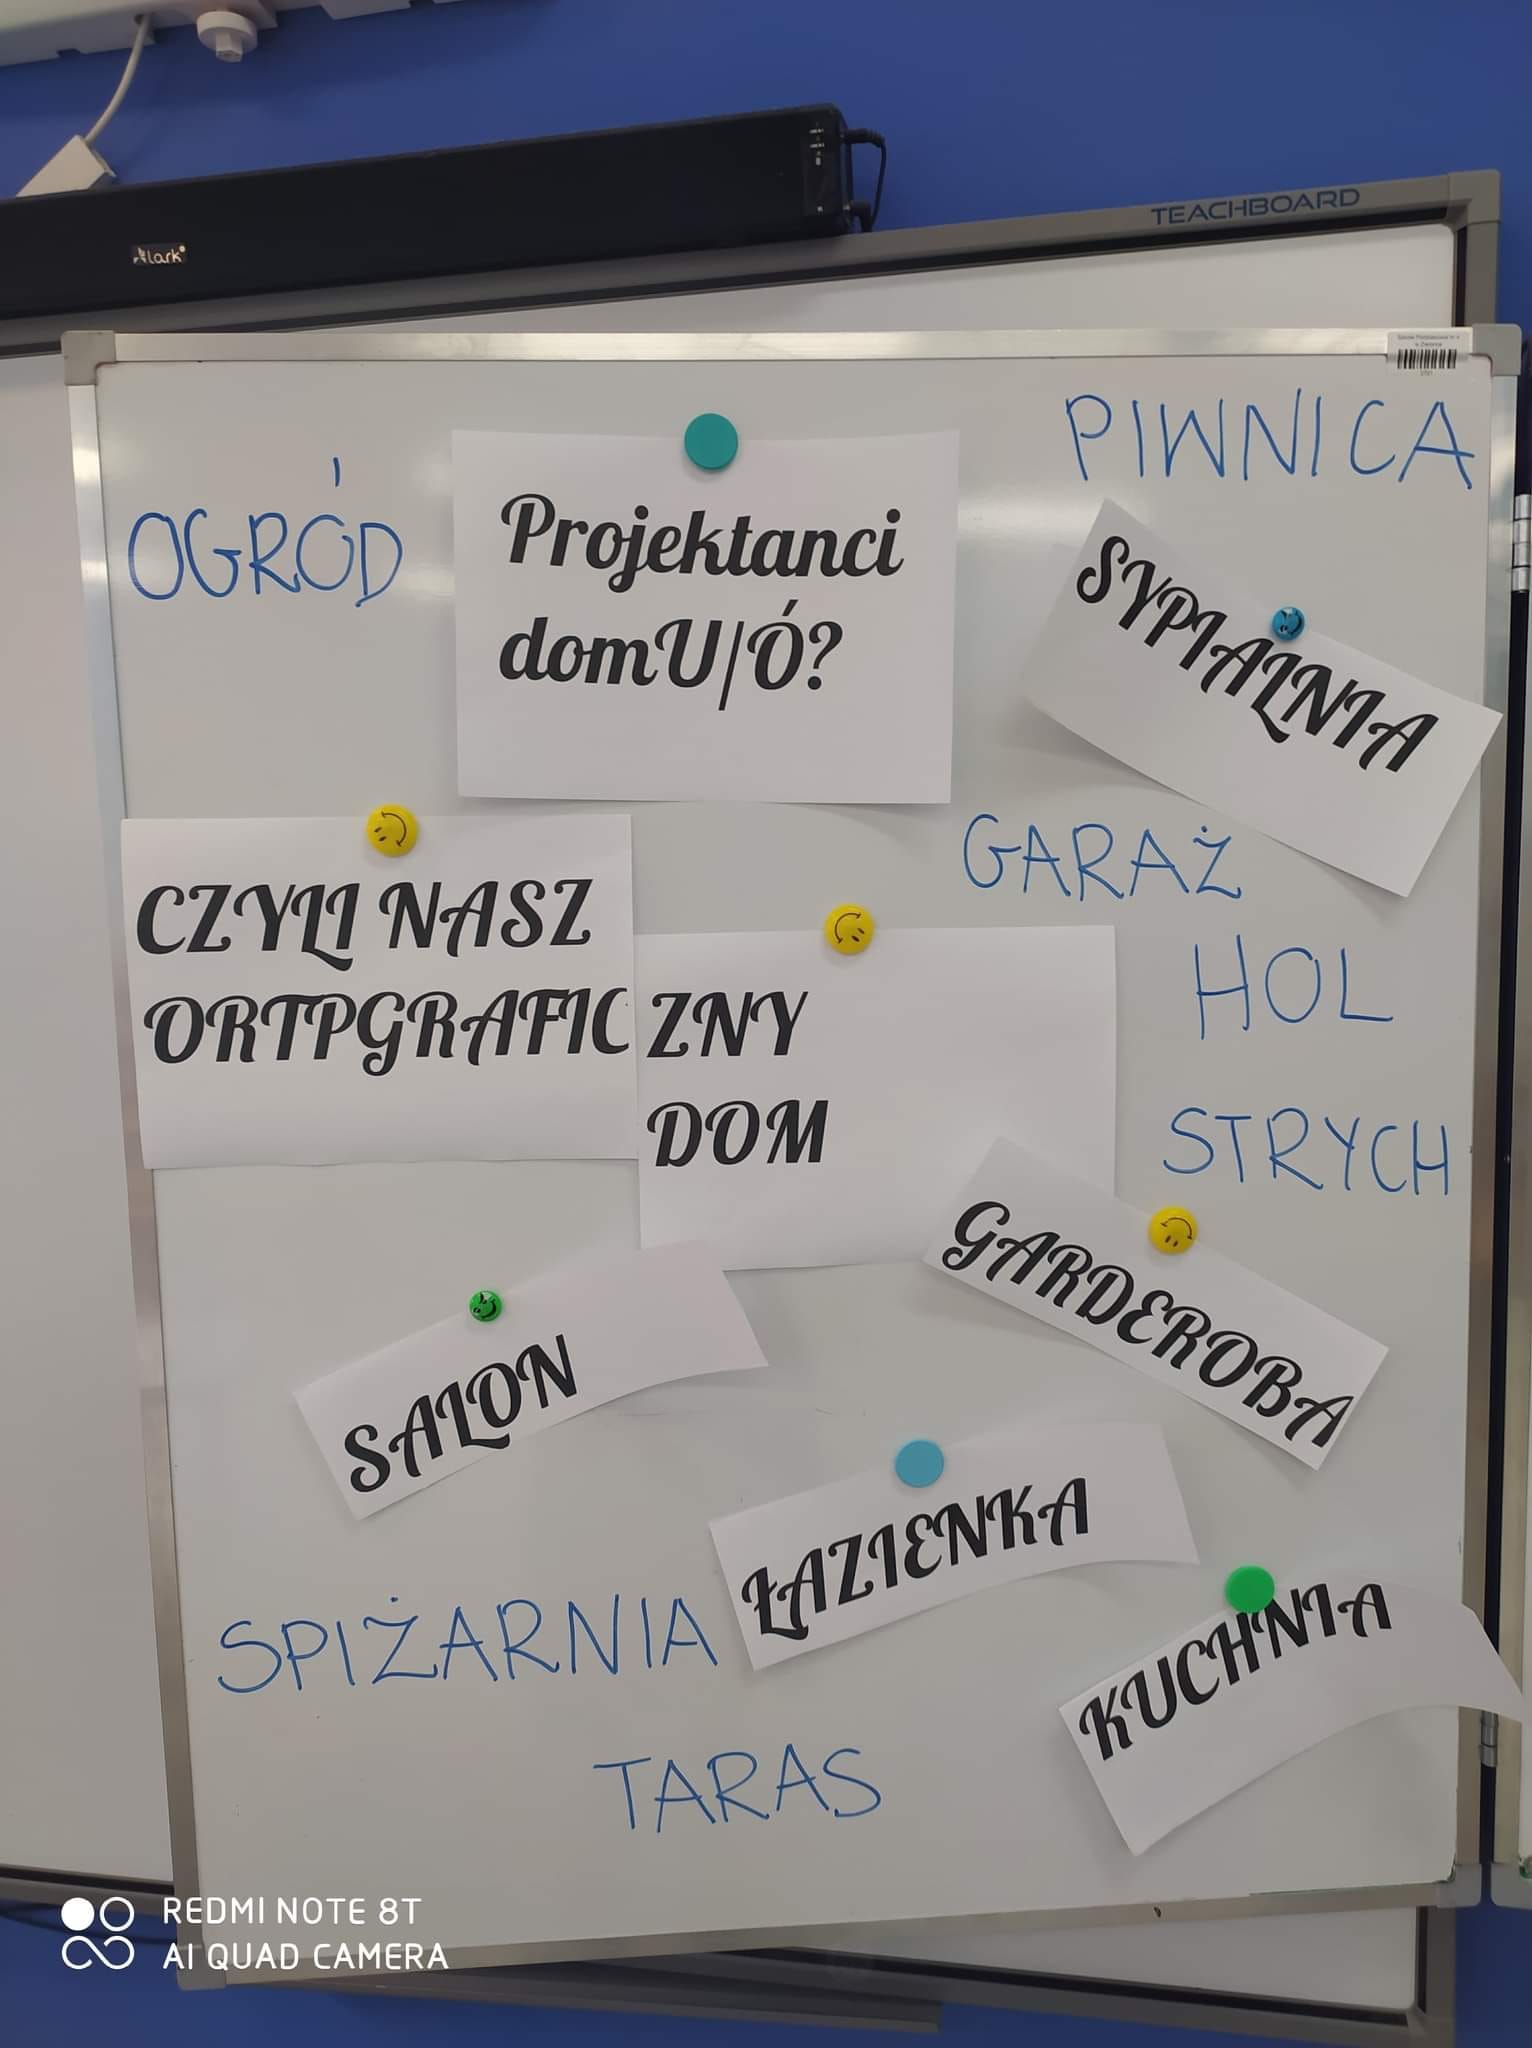 lark
TEACHBOARD
PIWNICA
OGRÓD
Projektanci
domU/Ó?
SYPIALNIA
GARAŻ
CZYLI NASZ
ORTPGRAFIC
ZNY
DOM
HOL
STRYCH
GARDEROBA
SALON
ŁAZIENKA
KUCHNIA
SPIŻARNIA
TARAS
REDMI NOTE 8T
AI QUAD CAMERA